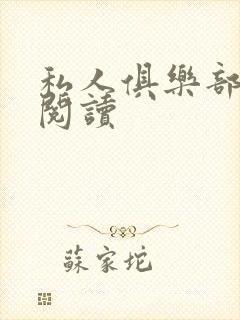 私人俱樂部
閱讀
蘇家坨